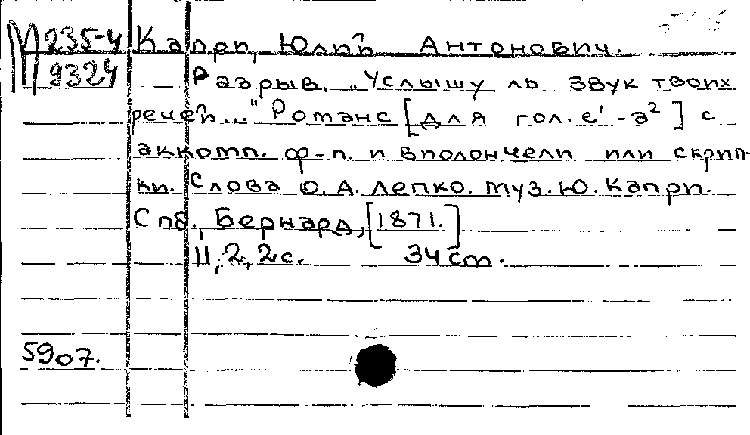 М 235-4 Капри, Юлий Антонович.
9324 Разрыв. „Услышу ль звук твоих
речей..." Романс [для гол. e¹-a²] с
аккомп. ф-п. и виолончели или скрип-
ки. Слова О. А. Лепко. Муз. Ю. Капри.
Спб., Бернард, [1871.]
11, 2, 2 с. 34 см.
5907.